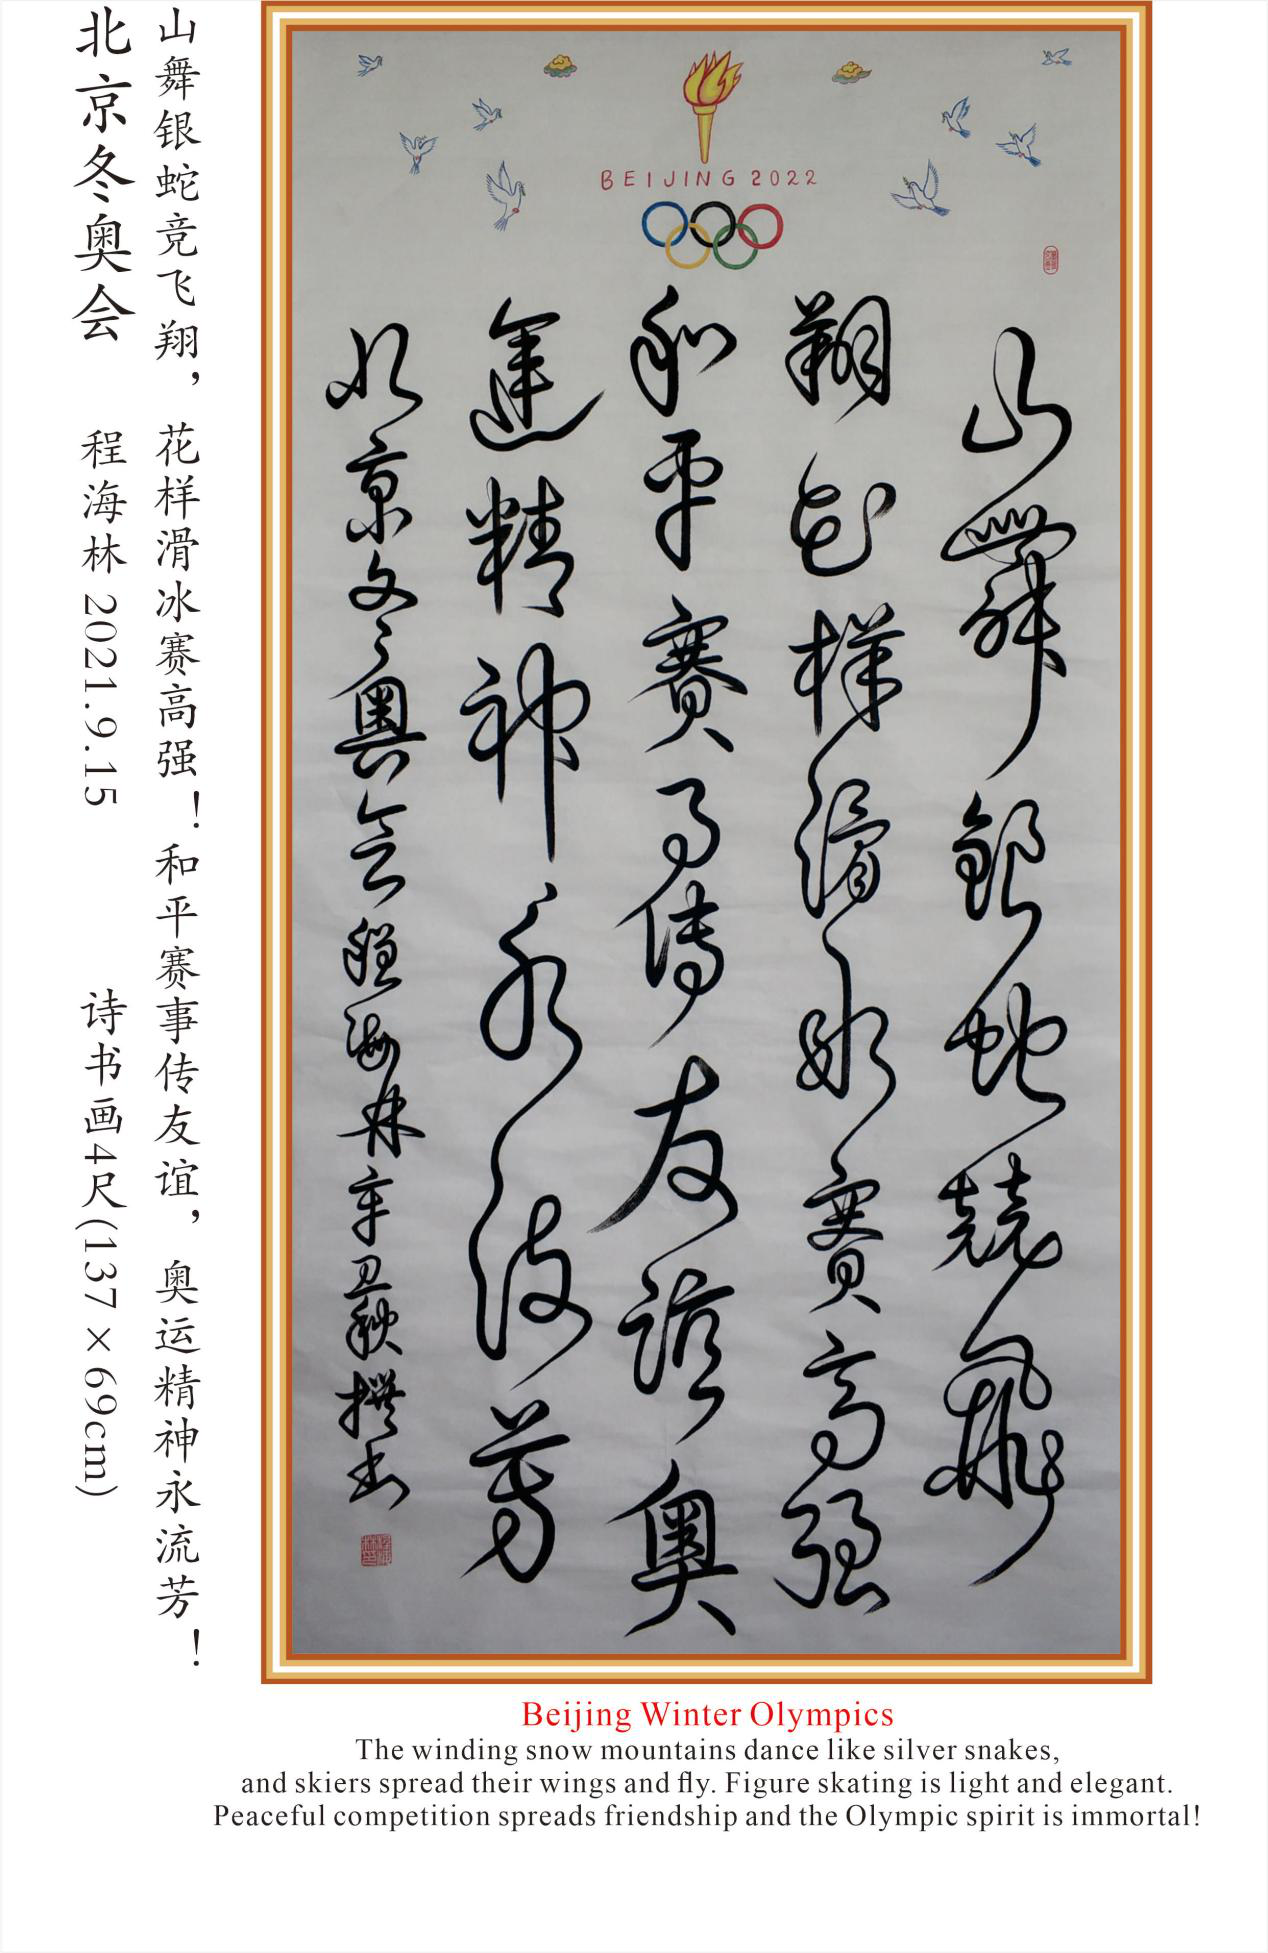 BEIJING 2022
山舞銀蛇競飛
翔花樣滑冰賽高强
和平賽事傳友誼奥
運精神永流芳
北京冬奥會程海林辛丑秋撰书
山舞银蛇竞飞翔，花样滑冰赛高强！和平赛事传友谊，奥运精神永流芳！
北京冬奥会 程海林 2021.9.15 诗书画4尺(137×69cm)
Beijing Winter Olympics
The winding snow mountains dance like silver snakes,
and skiers spread their wings and fly. Figure skating is light and elegant.
Peaceful competition spreads friendship and the Olympic spirit is immortal!